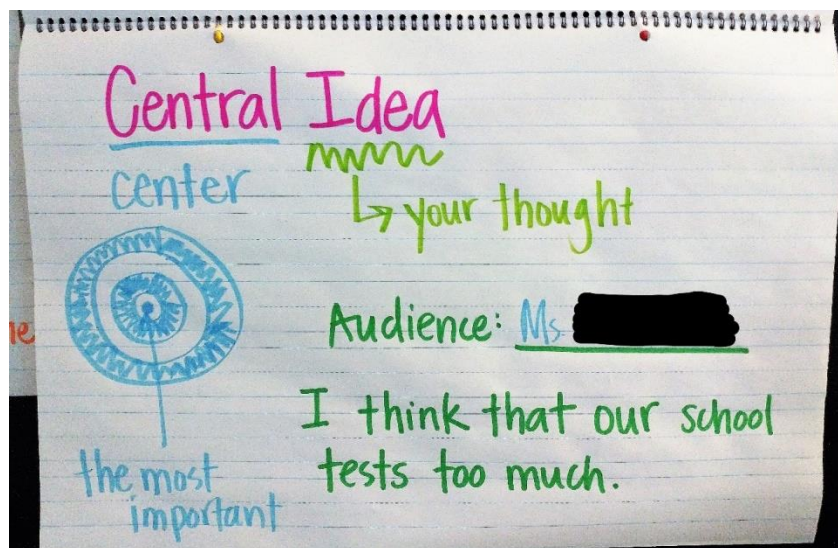 Central Idea
center
your thought
Audience: Ms.
I think that our school
tests too much.
the most
important